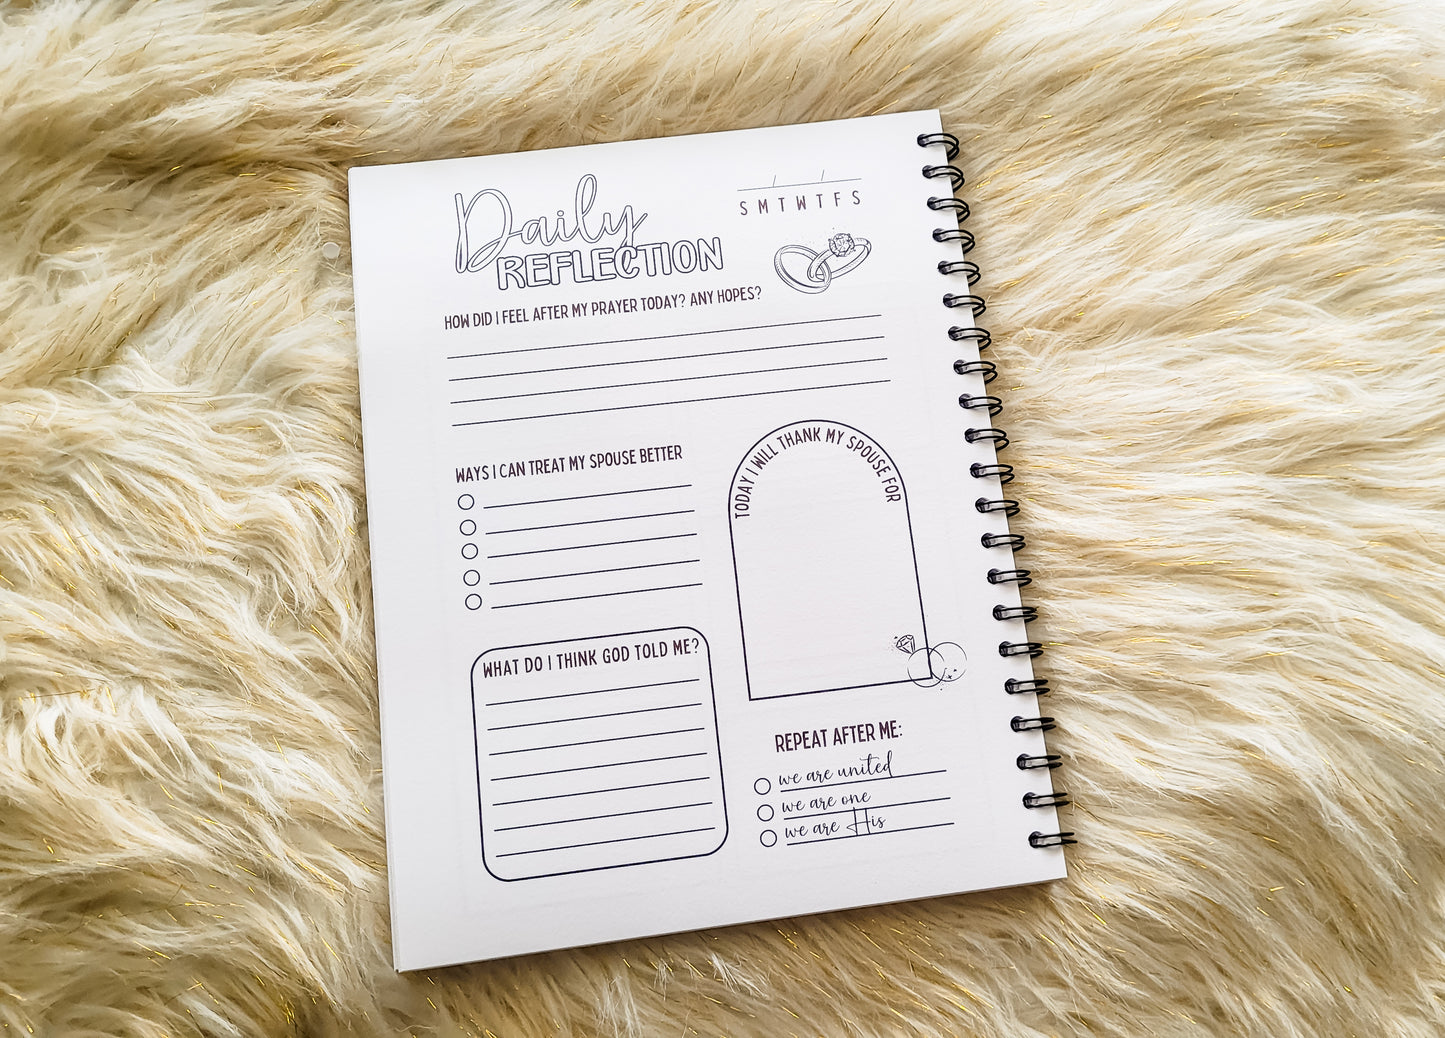 Daily
REFLECTION
/ /
S M T W T F S
HOW DID I FEEL AFTER MY PRAYER TODAY? ANY HOPES?
WAYS I CAN TREAT MY SPOUSE BETTER
TODAY I WILL THANK MY SPOUSE FOR
WHAT DO I THINK GOD TOLD ME?
REPEAT AFTER ME:
we are united
we are one
we are His